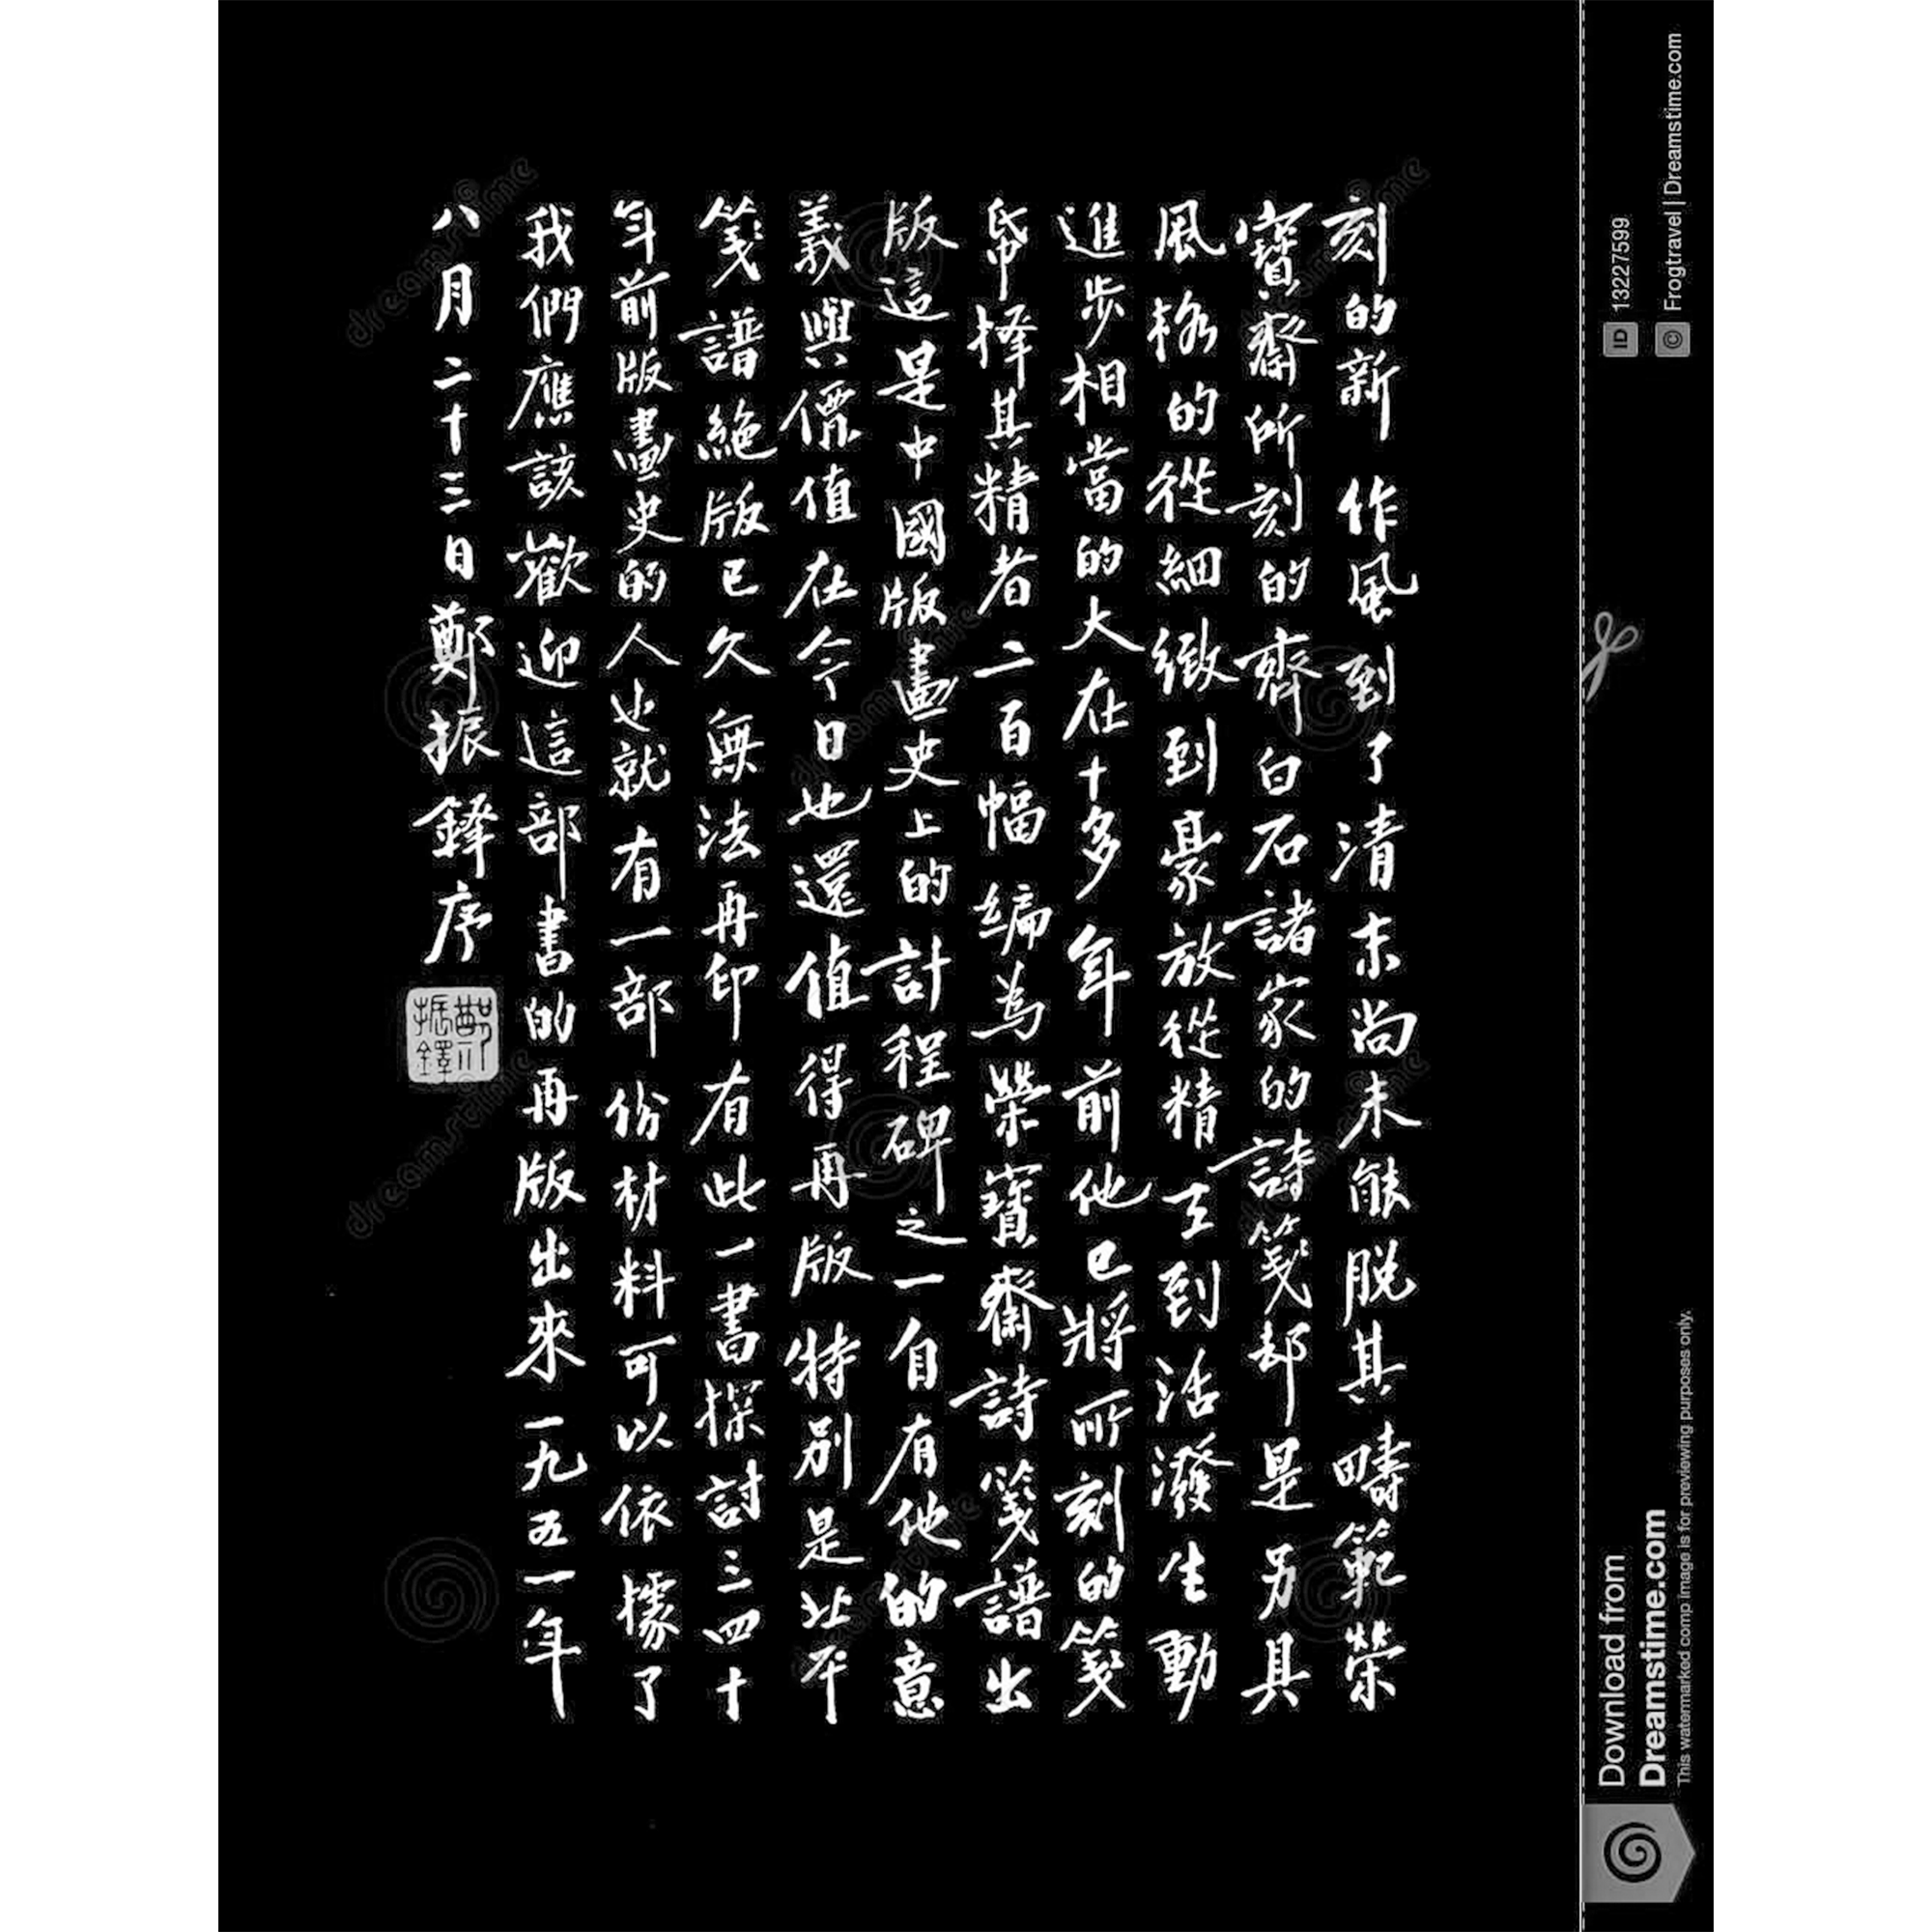 刻的新作風到了清末尚未能脱其疇範榮
寶齋所刻的齊白石諸家的詩箋却是另具
風格的從細緻到豪放從精工到活潑生動
進步相當的大在十多年前他已將所刻的箋
帋擇其精者二百幅編為榮寶齋詩箋譜出
版這是中國版畫史上的計程碑之一自有他的意
義與價值在今日也還值得再版特别是北平
箋譜絶版已久無法再印有此一書探討三四十
年前版畫史的人也就有一部份材料可以依據了
我們應該歡迎這部書的再版出來一九五一年
八月二十三日鄭振鐸序
鄭振鐸
dreamstime
ID 13227599
© Frogtravel | Dreamstime.com
Download from
Dreamstime.com
This watermarked comp image is for previewing purposes only.